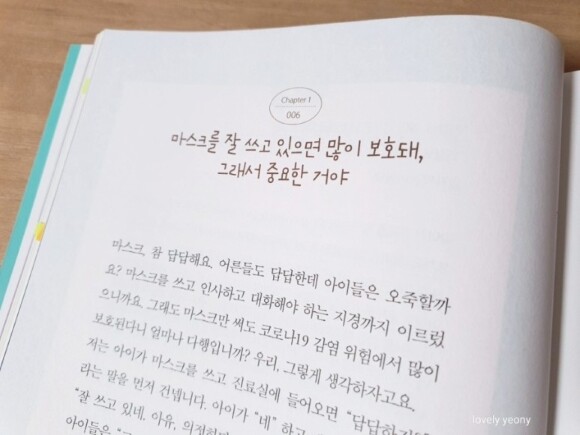 Chapter 1
006
마스크를 잘 쓰고 있으면 많이 보호돼,
그래서 중요한 거야
마스크, 참 답답해요. 어른들도 답답한데 아이들은 오죽할까
요? 마스크를 쓰고 인사하고 대화해야 하는 지경까지 이르렀
으니까요. 그래도 마스크만 써도 코로나19 감염 위험에서 많이
보호된다니 얼마나 다행입니까? 우리, 그렇게 생각하자고요.
저는 아이가 마스크를 쓰고 진료실에 들어오면 "답답하지?"
라는 말을 먼저 건넵니다. 아이가 "네" 하고
"잘 쓰고 있네. 아유, 의젓
아이들은
lovely yeony